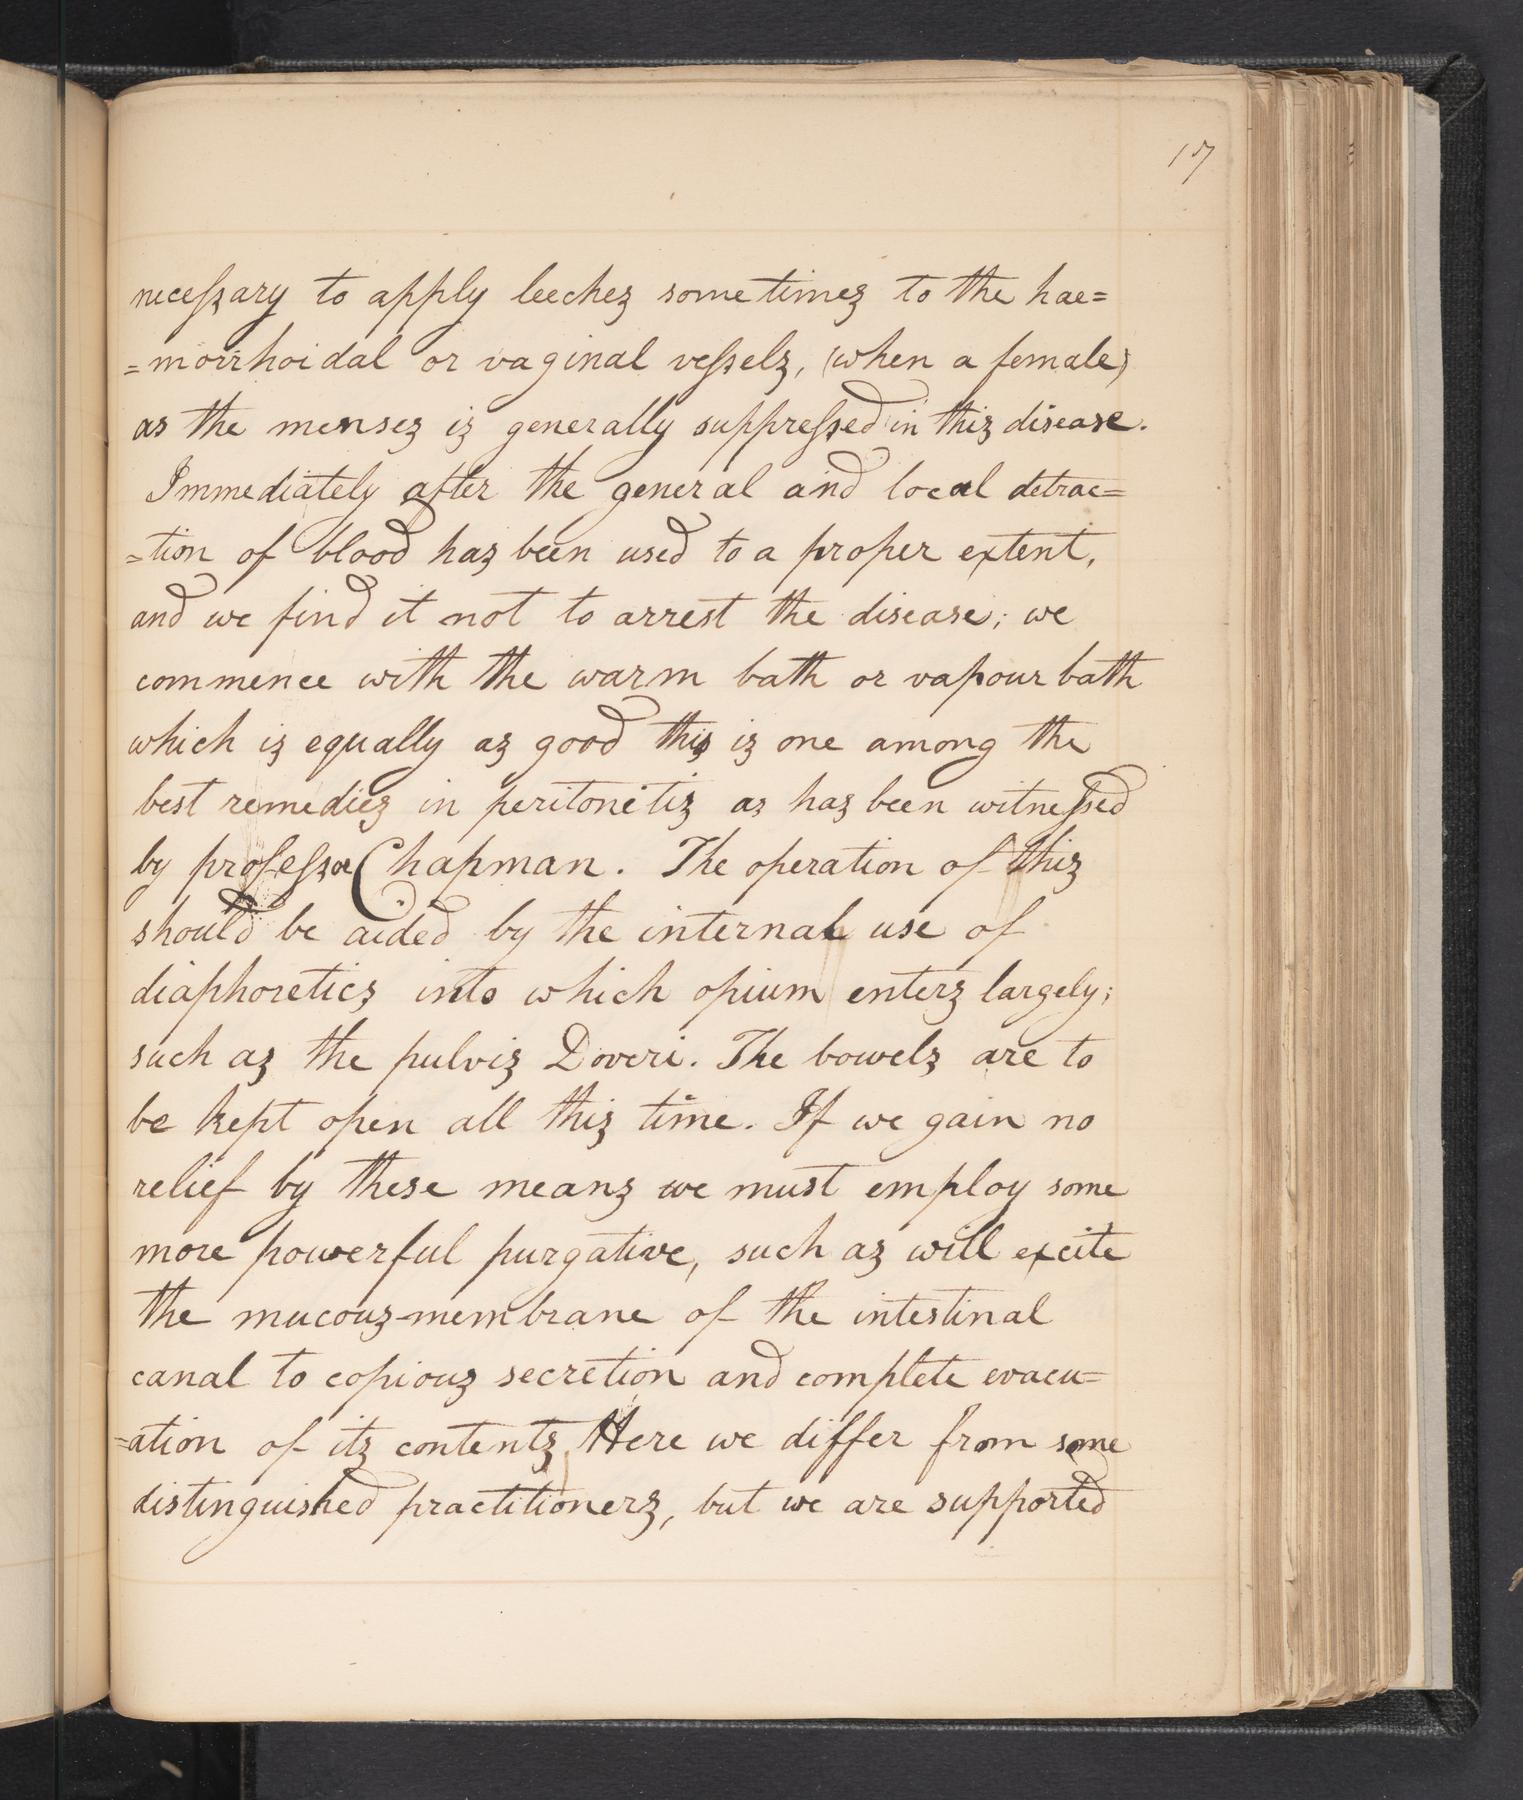 17
necessary to apply leeches sometimes to the hae=
=morrhoidal or vaginal vessels, (when a female)
as the menses is generally suppressed in this disease.
Immediately after the general and local detrac=
=tion of blood has been used to a proper extent,
and we find it not to arrest the disease; we
commence with the warm bath or vapour bath
which is equally as good this is one among the
best remedies in peritonitis as has been witnessed
by professor Chapman. The operation of this
should be aided by the internal use of
diaphoretics into which opium enters largely;
such as the pulvis Doveri. The bowels are to
be kept open all this time. If we gain no
relief by these means we must employ some
more powerful purgative, such as will excite
the mucous-membrane of the intestinal
canal to copious secretion and complete evacu=
=ation of its contents. Here we differ from some
distinguished practitioners, but we are supported